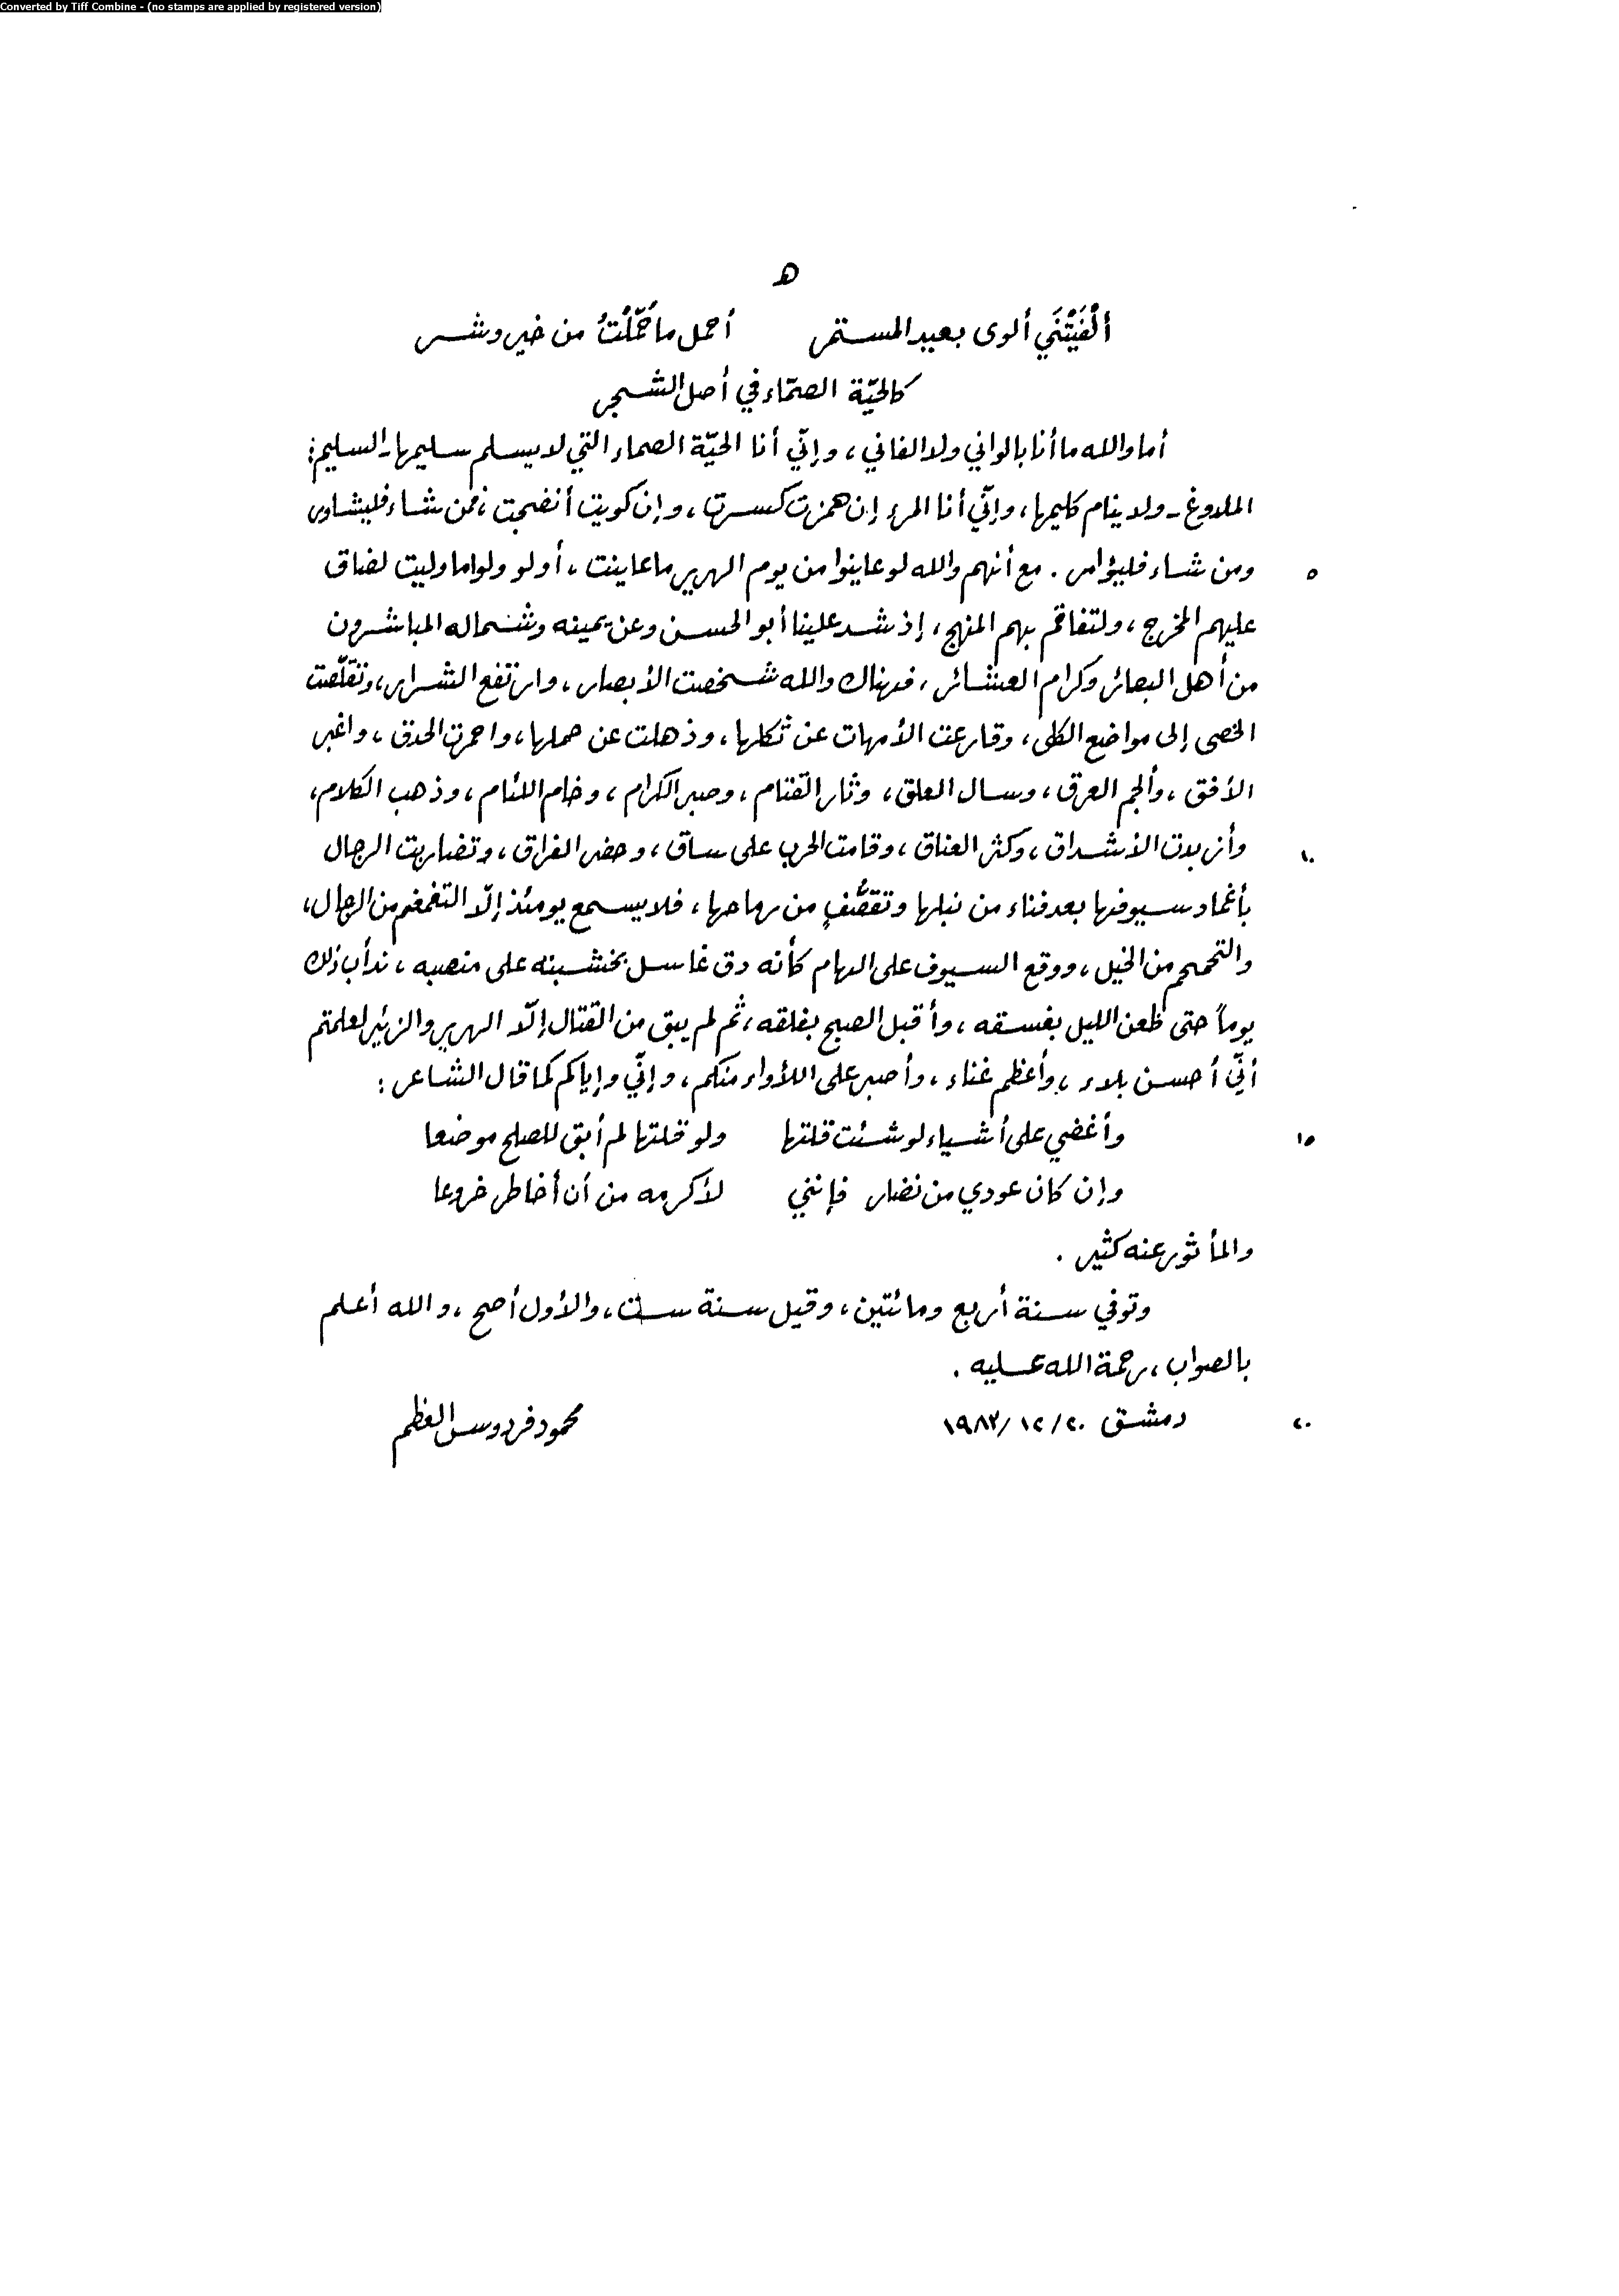 Converted by Tiff Combine - (no stamps are applied by registered version)
ه
ألْفَيْتُنَي ألوى بعيد المستمر أحمل ما حُمِّلْتُ من خير وشر
كالحيّة الصمّاء في أصل الشجر
أما والله ما أنا بالواني ولا الفاني، وإنّي أنا الحيّة الصماء التي لا يسلم سليمها - السليم:
الملدوغ - ولا ينام كليمها، وإنّي أنا المرء إن همزت كسرت، وإن كويت أنضجت، فمن شاء فليشاور
ومن شاء فليؤامر. مع أنهم والله لو عاينوا من يوم الهرير ما عاينت، أو لو ولوا ما وليت لضاق ٥
عليهم المخرج، ولتفاقم بهم المنهج، إذ شد علينا أبو الحسن وعن يمينه وشماله المباشرون
من أهل البصائر وكرام العشائر، فهناك والله شخصت الأبصار، وارتفع الشرار، وتقلّصت
الخصى إلى مواضع الكلى، وقارعت الأمهات عن ثكلها، وذهلت عن حملها، واحمرت الحدق، واغبر
الأفق، وألجم العرق، وسال العلق، وثار القتام، وصبر الكرام، وخام اللئام، وذهب الكلام،
وأزبدت الأشداق، وكثر العناق، وقامت الحرب على ساق، وحضر الفراق، وتضاربت الرجال ١٠
بأغماد سيوفها بعد فناء من نبلها وتقصُّفٍ من رماحها، فلا يسمع يومئذ إلّا التغمغم من الرجال،
والتحمحم من الخيل، ووقع السيوف على الهام كأنه دق غاسل بخشبته على منصبه، ندأب ذلك
يوماً حتى ظعن الليل بغسقه، وأقبل الصبح بفلقه، ثم لم يبق من القتال إلّا الهرير والزئير لعلمتم
أنّي أحسن بلاء، وأعظم غناء، وأصبر على اللأواء منكم، وإنّي وإياكم كما قال الشاعر:
وأغضي على أشياء لو شئت قلتها ولو قلتها لم أبق للصلح موضعا ١٥
وإن كان عودي من نضار فإنني لأكرمه من أن أخاطر خروعا
والمأثور عنه كثير.
وتوفي سنة أربع ومائتين، وقيل سنة ست، والأول أصح، والله أعلم
بالصواب، رحمة الله عليه.
دمشق ٢٠/١٢/١٩٨٢ محمود فردوس العظم ٢٠